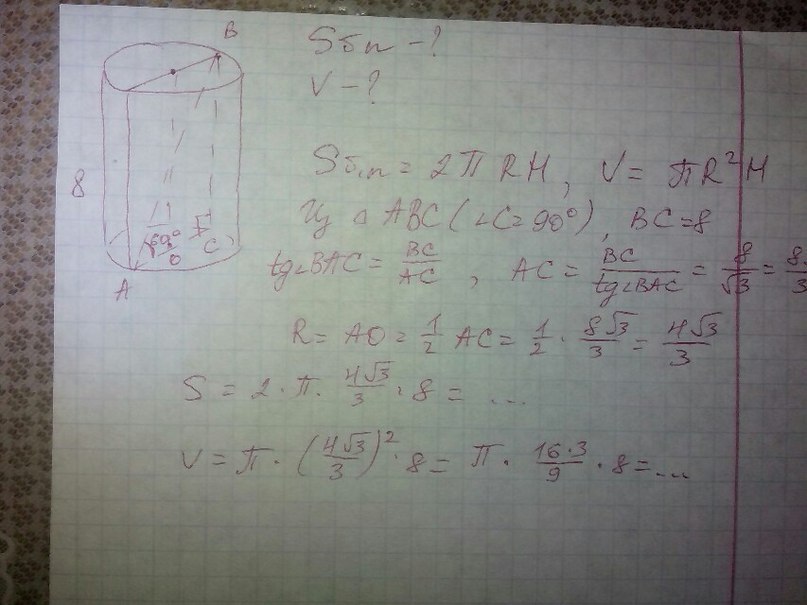 B
Sбп - ?
V - ?
8
Sбп = 2π RH, V = πR²H
Из △ ABC (∠C=90°), BC=8
60°
C
O
A
tg∠BAC = BC/AC, AC = BC/tg∠BAC = 8/√3 = 8
R = AO = 1/2 AC = 1/2 · 8√3/3 = 4√3/3
S = 2 · π · 4√3/3 · 8 = ...
V = π · (4√3/3)² · 8 = π · 16·3/9 · 8 = ...